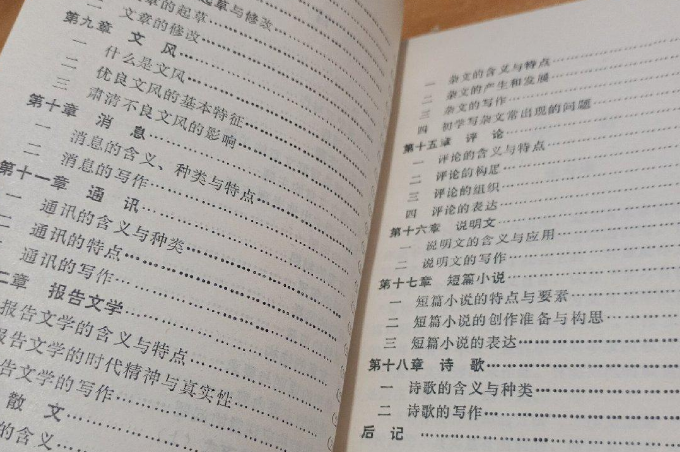 章的起草
草与修改
二 文章的修改
第九章 文 风
一 什么是文风
二 优良文风的基本特征
三 肃清不良文风的影响
第十章 消 息
一 消息的含义、种类与特点
二 消息的写作
第十一章 通 讯
一 通讯的含义与种类
二 通讯的特点
三 通讯的写作
二章 报告文学
报告文学的含义与特点
报告文学的时代精神与真实性
告文学的写作
散 文
的含义
一 杂文的含义与特点
二 杂文的产生和发展
三 杂文的写作
四 初学写杂文常出现的问题
第十五章 评 论
一 评论的含义与特点
二 评论的构思
三 评论的组织
四 评论的表达
第十六章 说明文
一 说明文的含义与应用
二 说明文的写作
第十七章 短篇小说
一 短篇小说的特点与要素
二 短篇小说的创作准备与构思
三 短篇小说的表达
第十八章 诗 歌
一 诗歌的含义与种类
二 诗歌的写作
后 记